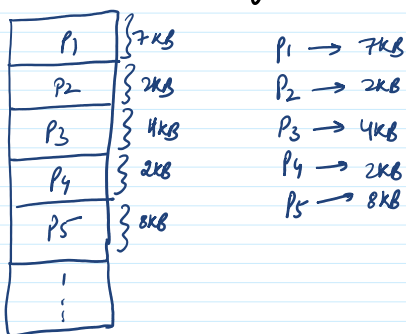 P1 7KB
P2 2KB
P3 4KB
P4 2KB
P5 8KB
P1 → 7KB
P2 → 2KB
P3 → 4KB
P4 → 2KB
P5 → 8KB